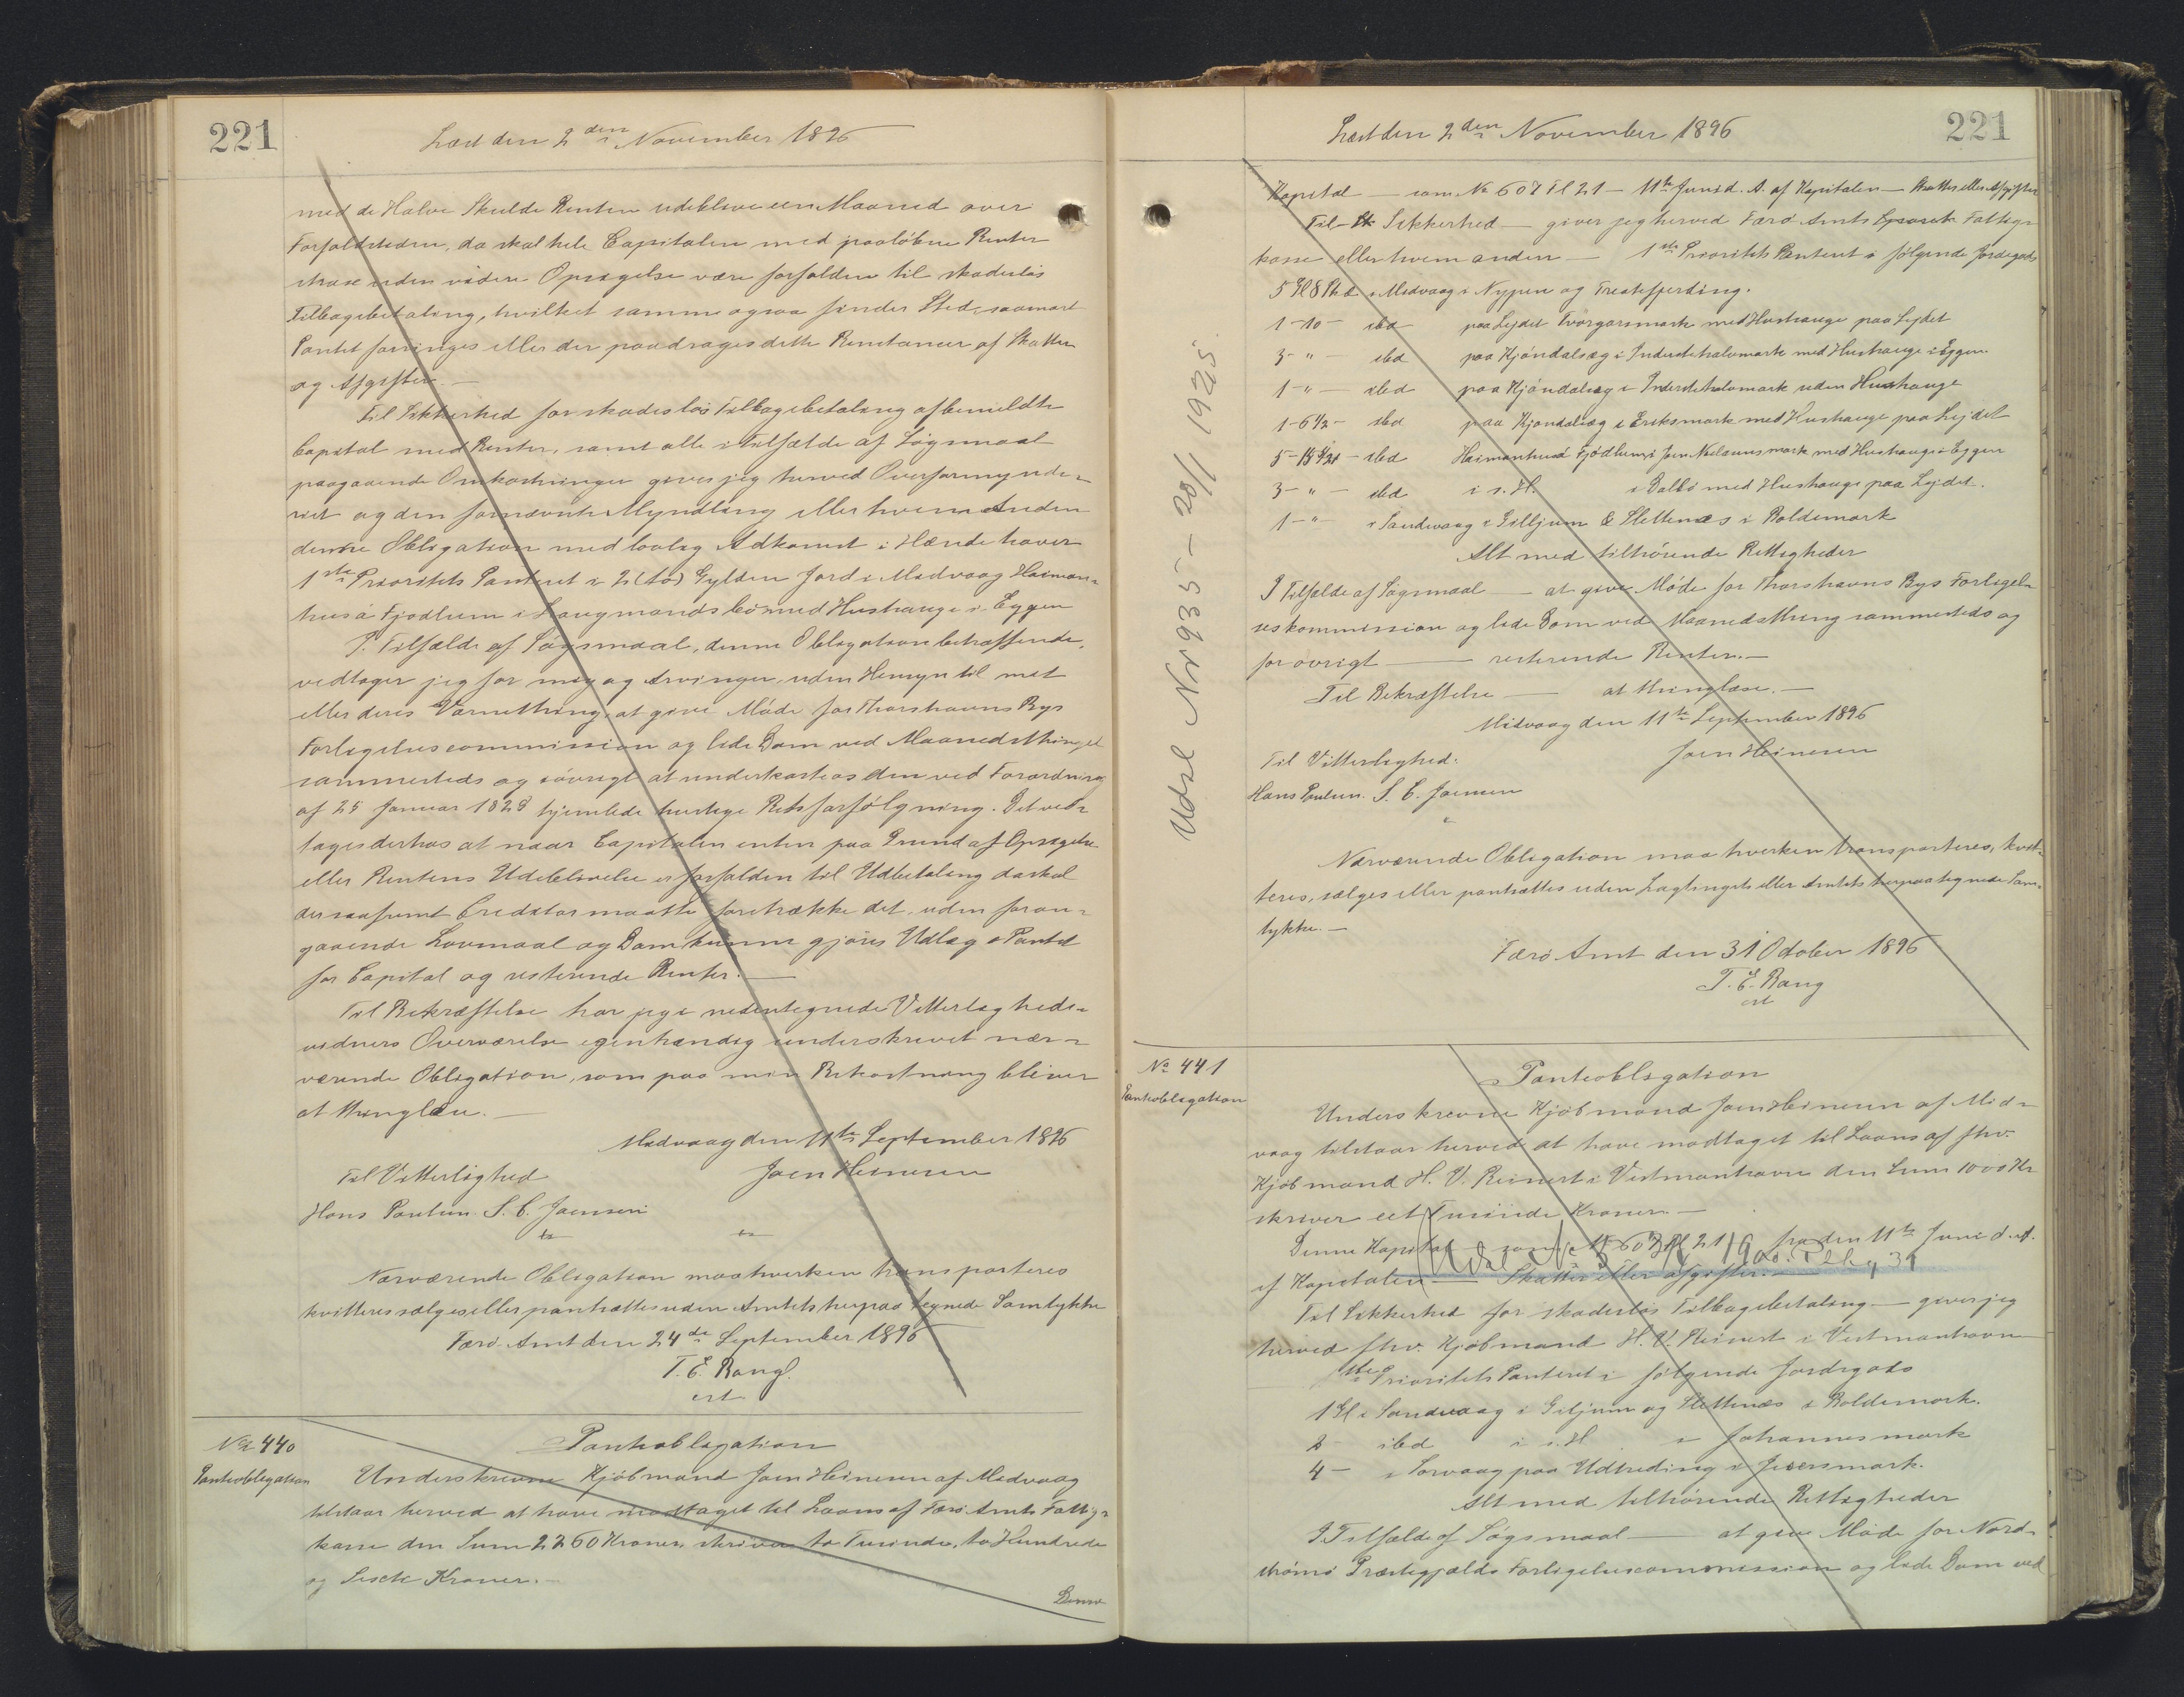 221
Læst den 2den November 1896
med de Halve Skulde Renten udeblive een Maaned over
Forfaldstiden, da skal hele Capitalen med paaløbne Renter
strax uden videre Opsigelse være forfalden til skadesløs
Tilbagebetaling, hvilket samme ogsaa finder Sted, saasnart
Pantet forringes eller der paadrages dette Restancer af Skatter
og Afgifter.—
Til Sikkerhed for skadesløs Tilbagebetaling af bemeldte
Capital med Renter, samt alle i Tilfælde af Søgsmaal
paagaaende Omkostninger giver jeg herved Overformynde-
riet og den fornævnte Myndling eller hvem Anden
denne Obligation med lovlig Adkomst i Hænde haver
1ste Prioritets Panteret i 2 (to) Gylden Jord i Midvaag Heiman-
husá Fjødlum i Laugmandsbö med Hushauge i Eggen
I Tilfælde af Søgsmaal, denne Obligation betræffende,
vedtager jeg for mig og Arvinger, uden Hensyn til mit
eller deres Værnething, at give Møde for Thorshavns Bys
Forligelsescommission og lide Dom ved Maanedsthinget
sammesteds og iøvrigt at underkaste os den ved Forordning
af 25 Januar 1828 hjemlede hurtige Retsforfølgning. Det ved-
tages derhos at naar Capitalen enten paa Grund af Opsigelse
eller Rentens Udeblivelse er forfalden til Udbetaling da skal
der saafremt Creditor maatte foretrække det, uden foran-
gaaende Lovmaal og Dom kunne gjøres Udlæg i Pantet
for Capital og resterende Renter.—
Til Bekræftelse har jeg i nedentegnede Vitterligheds-
vidners Overværelse egenhændig underskrevet nær-
værende Obligation, som paa min Bekostning bliver
at thinglæse.—
Midvaag den 11te September 1896
Til Vitterlighed
Joen Heinesen
Hans Poulsen. S. C. Joensen
Nærværende Obligation maa hverken transporteres
kvitteres sælges eller pantsættes uden Amtets herpaa tegnede Samtykke
Færø Amt den 24de September 1896
T. E. Bang
cst
No 440
Pantobligation
Pantobligation
Underskrevne Kjøbmand Joen Heinesen af Midvaag
tilstaar herved at have modtaget til Laans af Færø Amts Fattig-
kasse den Sum 2260 Kroner, skriver to Tusinde, to Hundrede
og Sexti Kroner.—
Denne
Læst den 2den November 1896
221
Kapital — som No 607 Fl 21 — 11te Juni d. A. af Kapitalen — Skatter eller Afgifter
Til Sikkerhed — giver jeg herved Færø Amts Fattig-
kasse eller hvem anden — 1ste Prioritets Panteret i følgende Jordegods
5 Gl 8 Sk i Midvaag i Nypen og Trestefjerding.
1 - 10 - ibd paa Lejdet Tvørgarsmark med Hushauge paa Lejdet
3 - " - ibd paa Kjøndalsæg i Inderstehalvmark med Hushauge i Eggen
1 - " - ibd paa Kjøndalsæg i Inderstehalvmark uden Hushauge
1 - 6½ - ibd paa Kjøndalsæg i Eriksmark med Hushauge paa Lejdet
ibd Heimanhusá Fjødlum i med Hushauge i Eggen
3 - " - ibd i s. H. i Dalbö med Hushauge paa Lejdet.
1 - " - i Sandevaag i Gilljum & Slettenæs i Boldemark
Alt med tilhørende Rettigheder
I Tilfælde af Søgsmaal — at give Møde for Thorshavns Bys Forligel-
seskommission og lide Dom ved Maanedsthing sammesteds og
for øvrigt — resterende Renter.—
Til Bekræftelse — at thinglæse.—
Midvaag den 11te September 1896
Til Vitterlighed.
Joen Heinesen
Hans Poulsen. S. C. Joensen
Nærværende Obligation maa hverken transporteres, kvit-
teres, sælges eller pantsættes uden Lagtingets eller Amtets herpaategnede Sam-
tykke.—
Færø Amt den 31 October 1896
T. E. Bang
cst
Udsl Nr 935 - 20/1 1925
No 441
Pantobligation
Pantobligation
Underskrevne Kjøbmand Joen Heinesen af Mid-
vaag tilstaar herved at have modtaget til Laans af fhv.
Kjøbmand H. V. Reinert i Vestmanhavn den Sum 1000 Kr
skriver eet Tusinde Kroner.—
Denne Kapital — som No 607 Fl 21 fra den 11te Juni d. A.
af Kapitalen — Skatter eller afgifter.—
Til Sikkerhed for skadesløs Tilbagebetaling — giver jeg
herved fhv. Kjøbmand H. V. Reinert i Vestmanhavn
1ste Prioritets Panteret i følgende Jordegods
1 Gl i Sandevaag i Giljum og Slettenæs i Boldemark.
2 - ibd i s. H i Johannesmark
4 - i Sorvaag paa Udtreding i
Alt med tilhørende Rettigheder
I Tilfælde af Søgsmaal — at give Møde for Nord-
strømø Præstegjælds Forligelsescommission og lide Dom ved